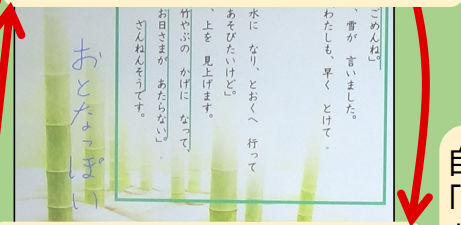 ごめんね。」
、雪が　言いました。
わたしも、早く　とけて、
水に　なり、とおくへ　行って
あそびたいけど。」
、上を　見上げます。
竹やぶの　かげに　なって、
お日さまが　あたらない。」
ざんねんそうです。
おとなっぽい
自
「